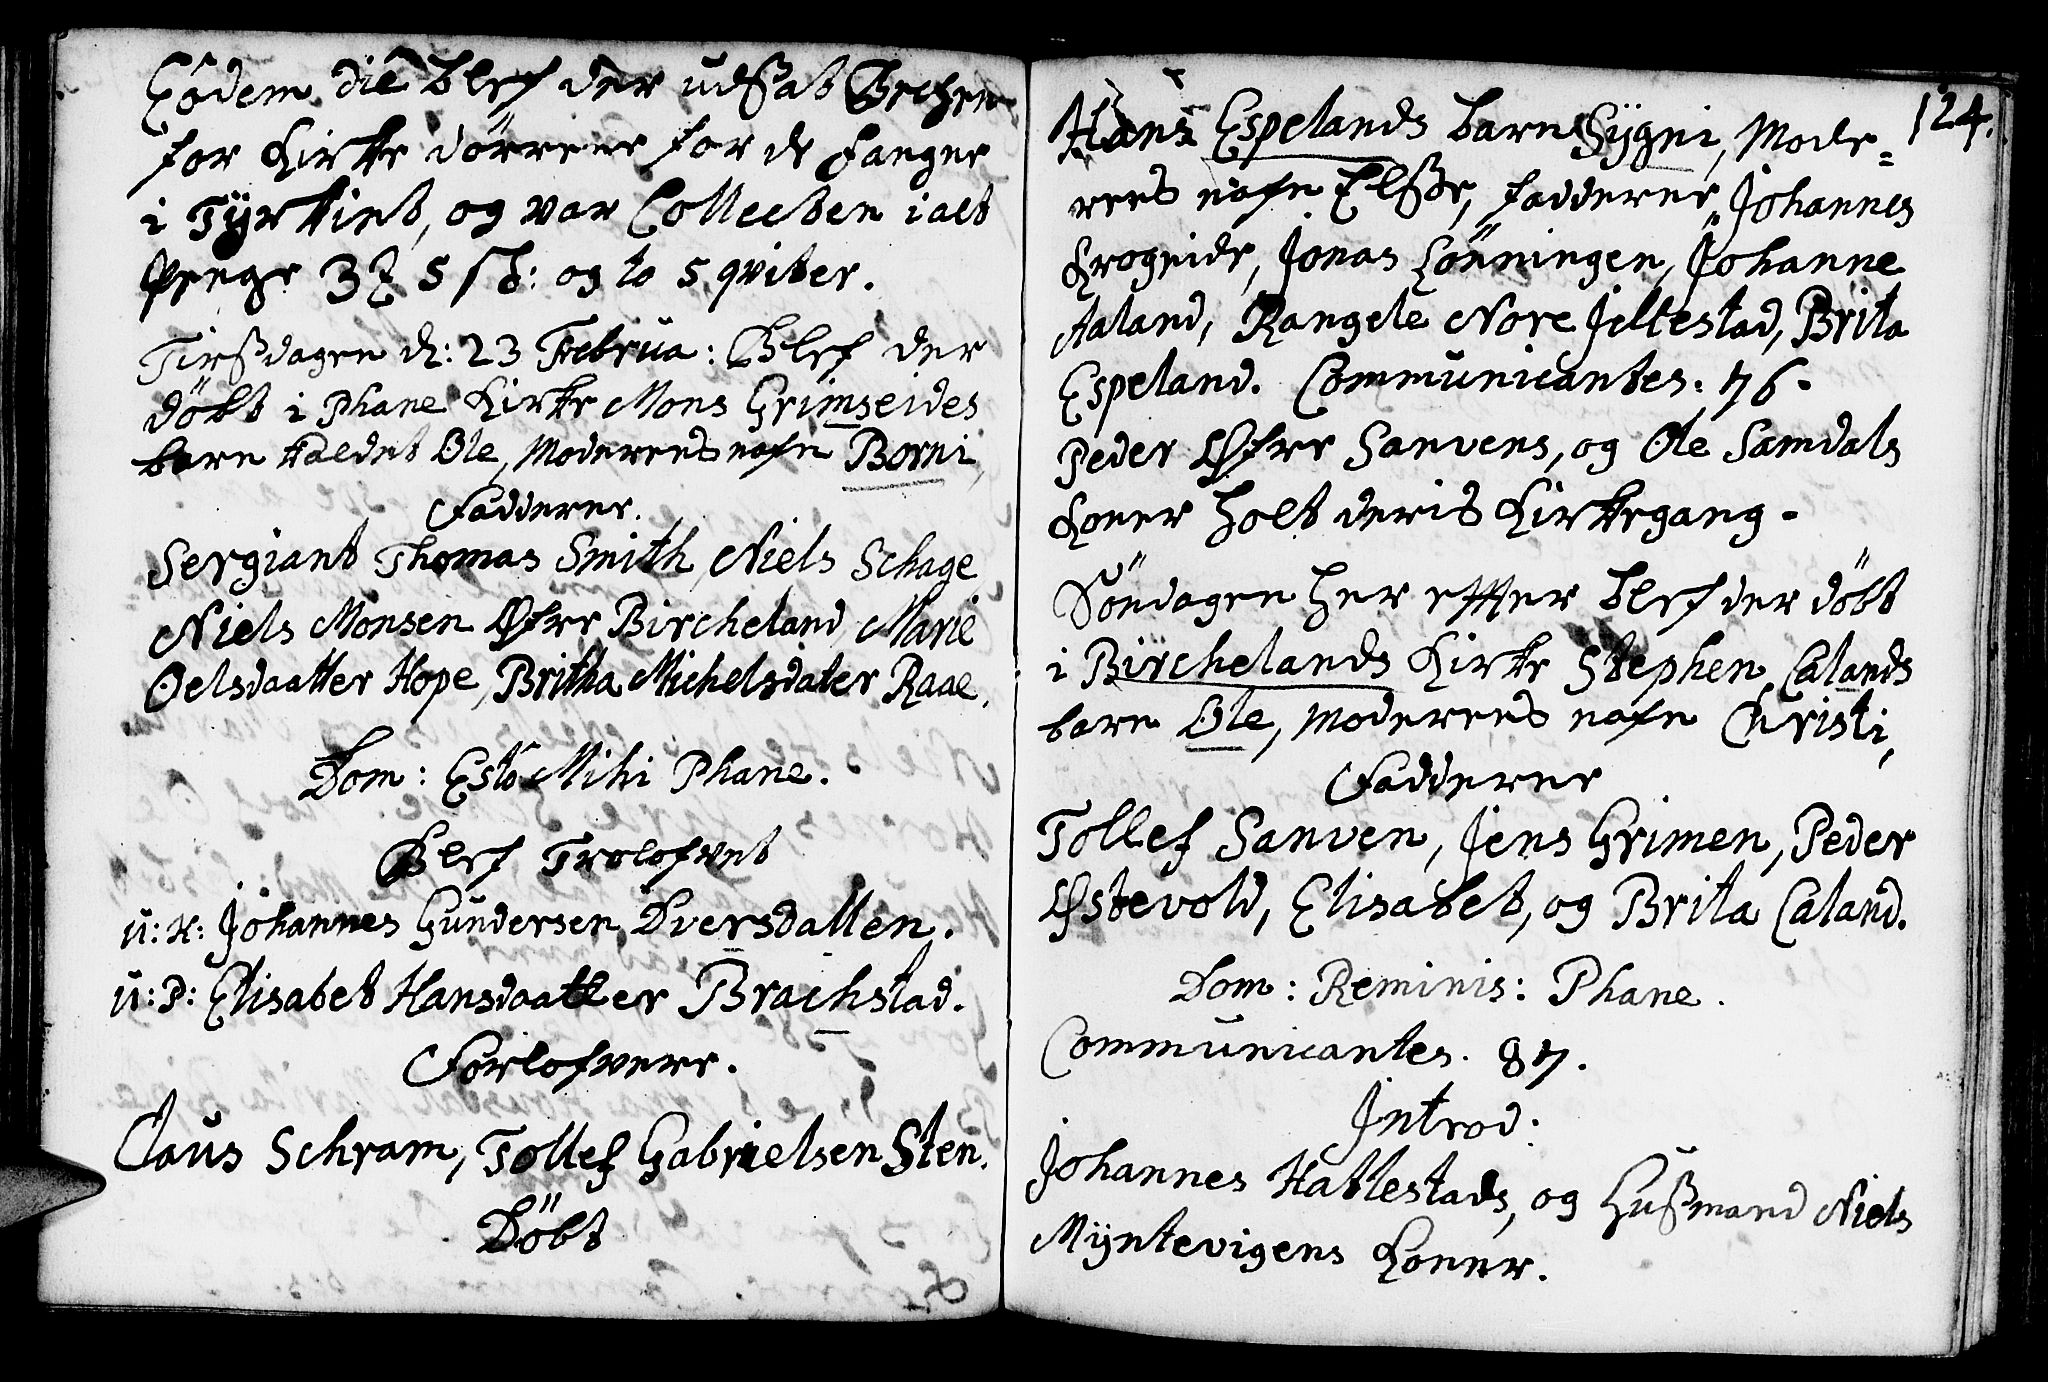 Eodem die blef der udßat Becher
for Kirke dörrene for de Fangne
i Tyrkiet, og var Collecten i alt
Penge 3 5 sh: og to 5 qviter.
Tirßdagen d: 23 Februa: Blef der
döbt i Phane Kirke Mons Grimseides
barn kaldet Ole, Moderens nafn Borni,
Fadderne.
Sergiant Thomas Smith, Niels Schage
Niels Monsen Øfre Bircheland, Marie
Oelsdaatter Hope, Britha Michelsdater Raae.
Dom: Esto Mihi Phane.
Blef Trolofvet
u: K: Johannes Gundersen Dversdallen.
u: P: Elisabet Hansdaatter Brachstad.
Forlofvere.
Claus Schram, Tollef Gabrielsen Sten.
Döbt
124.
Hans Espelands barn Sygni, Mode=
rens nafn Elsße, fadderne, Johannes
Krogeide, Jonas Lönningen, Johanne
Aaland, Rangele Nore Jiltestad, Brita
Espeland. Communicantes: 76.
Peder Øfre Sanvens, og Ole Samdals
Koner holt deris Kirkegang.
Söndagen her effter blef der döbt
i Birchelands Kirke Stephen Calands
barn Ole, Moderens nafn Christi,
Fadderne
Tollef Sanven, Jens Grimen, Peder
Østevold, Elisabet, og Brita Caland.
Dom: Reminis: Phane.
Communicantes. 87.
Introd:
Johannes Hatlestads, og Hußmand Niels
Myntevigens Koner.